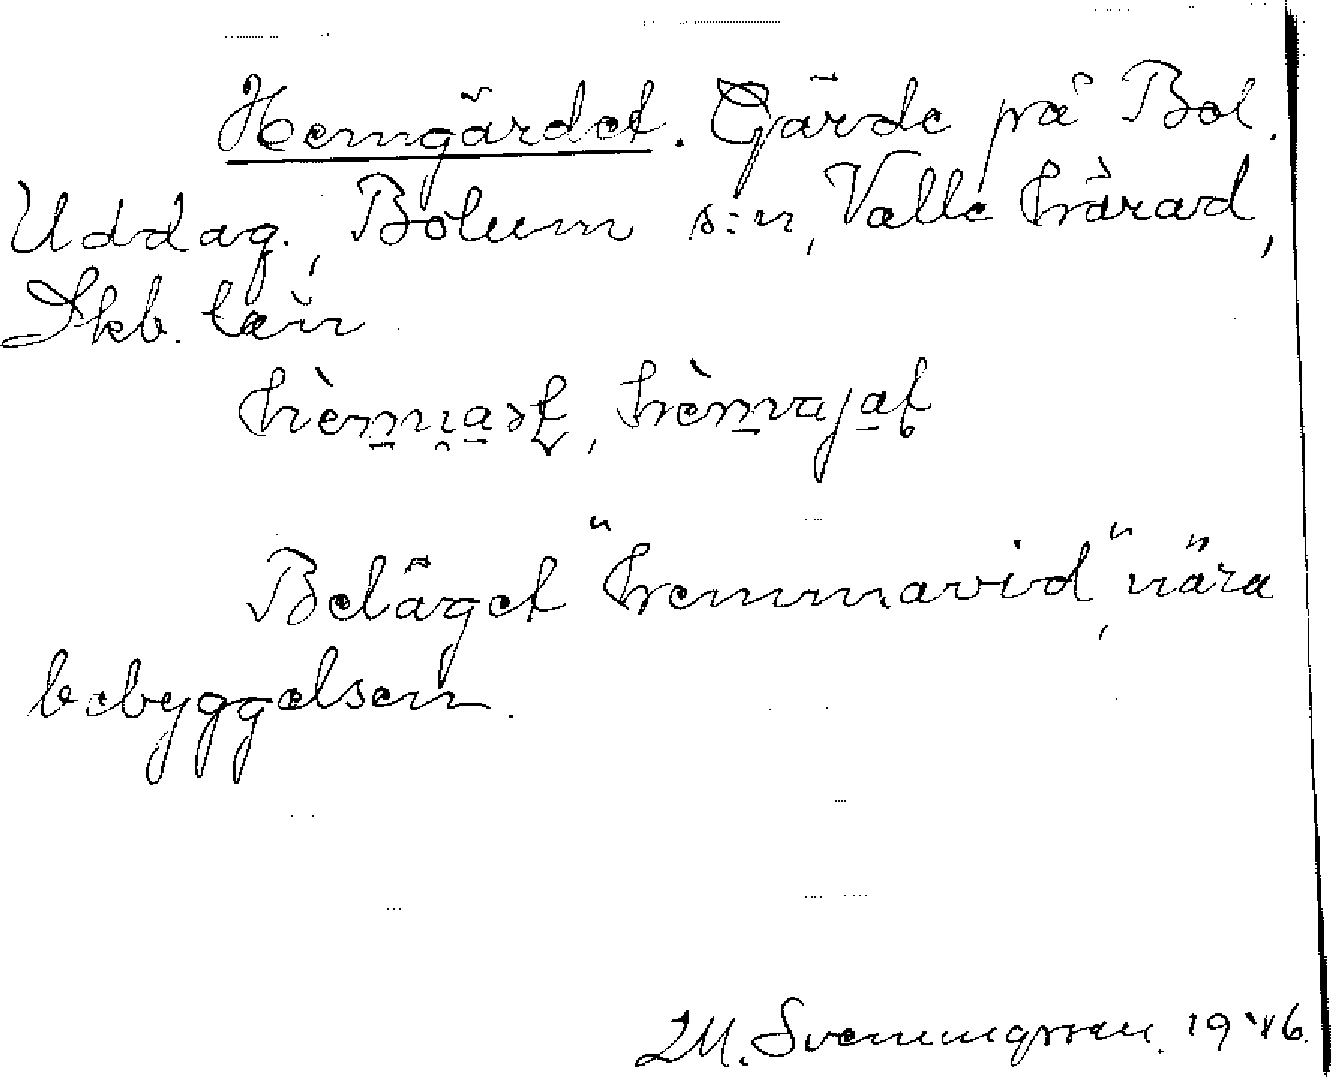 Hemgärdet. Gärde på Bol.
Uddag., Bolum s:n, Valle härad,
Skb. län
Beläget "hemmavid", nära
bebyggelsen.
M. Svenungsson. 1946.